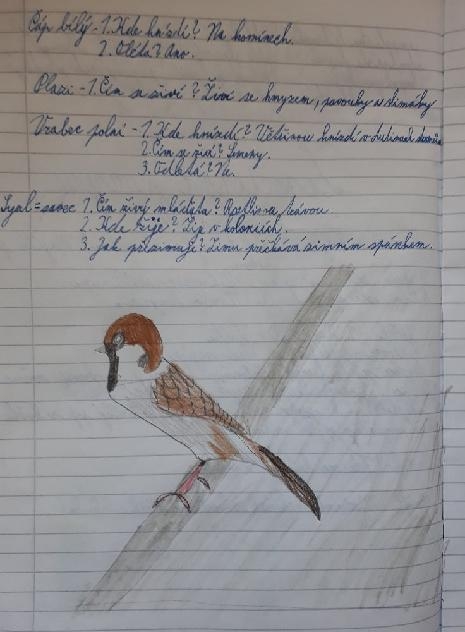 Čáp bílý - 1. Kde hnízdí? Na komínech.
2. Odlétá? Ano.
Plazi - 1. Čím se živí? Živí se hmyzem, pavouky a slimáky
Vrabec polní - 1. Kde hnízdí? Většinou hnízdí v dutinách
2. Čím se živí? Semeny.
3. Odlétá? Ne.
Sysel = savec 1. Čím živý mláďata? trávou.
2. Kde žije? Žije v koloniích.
3. Jak přezimuje? Zimu přečkává zimním spánkem.